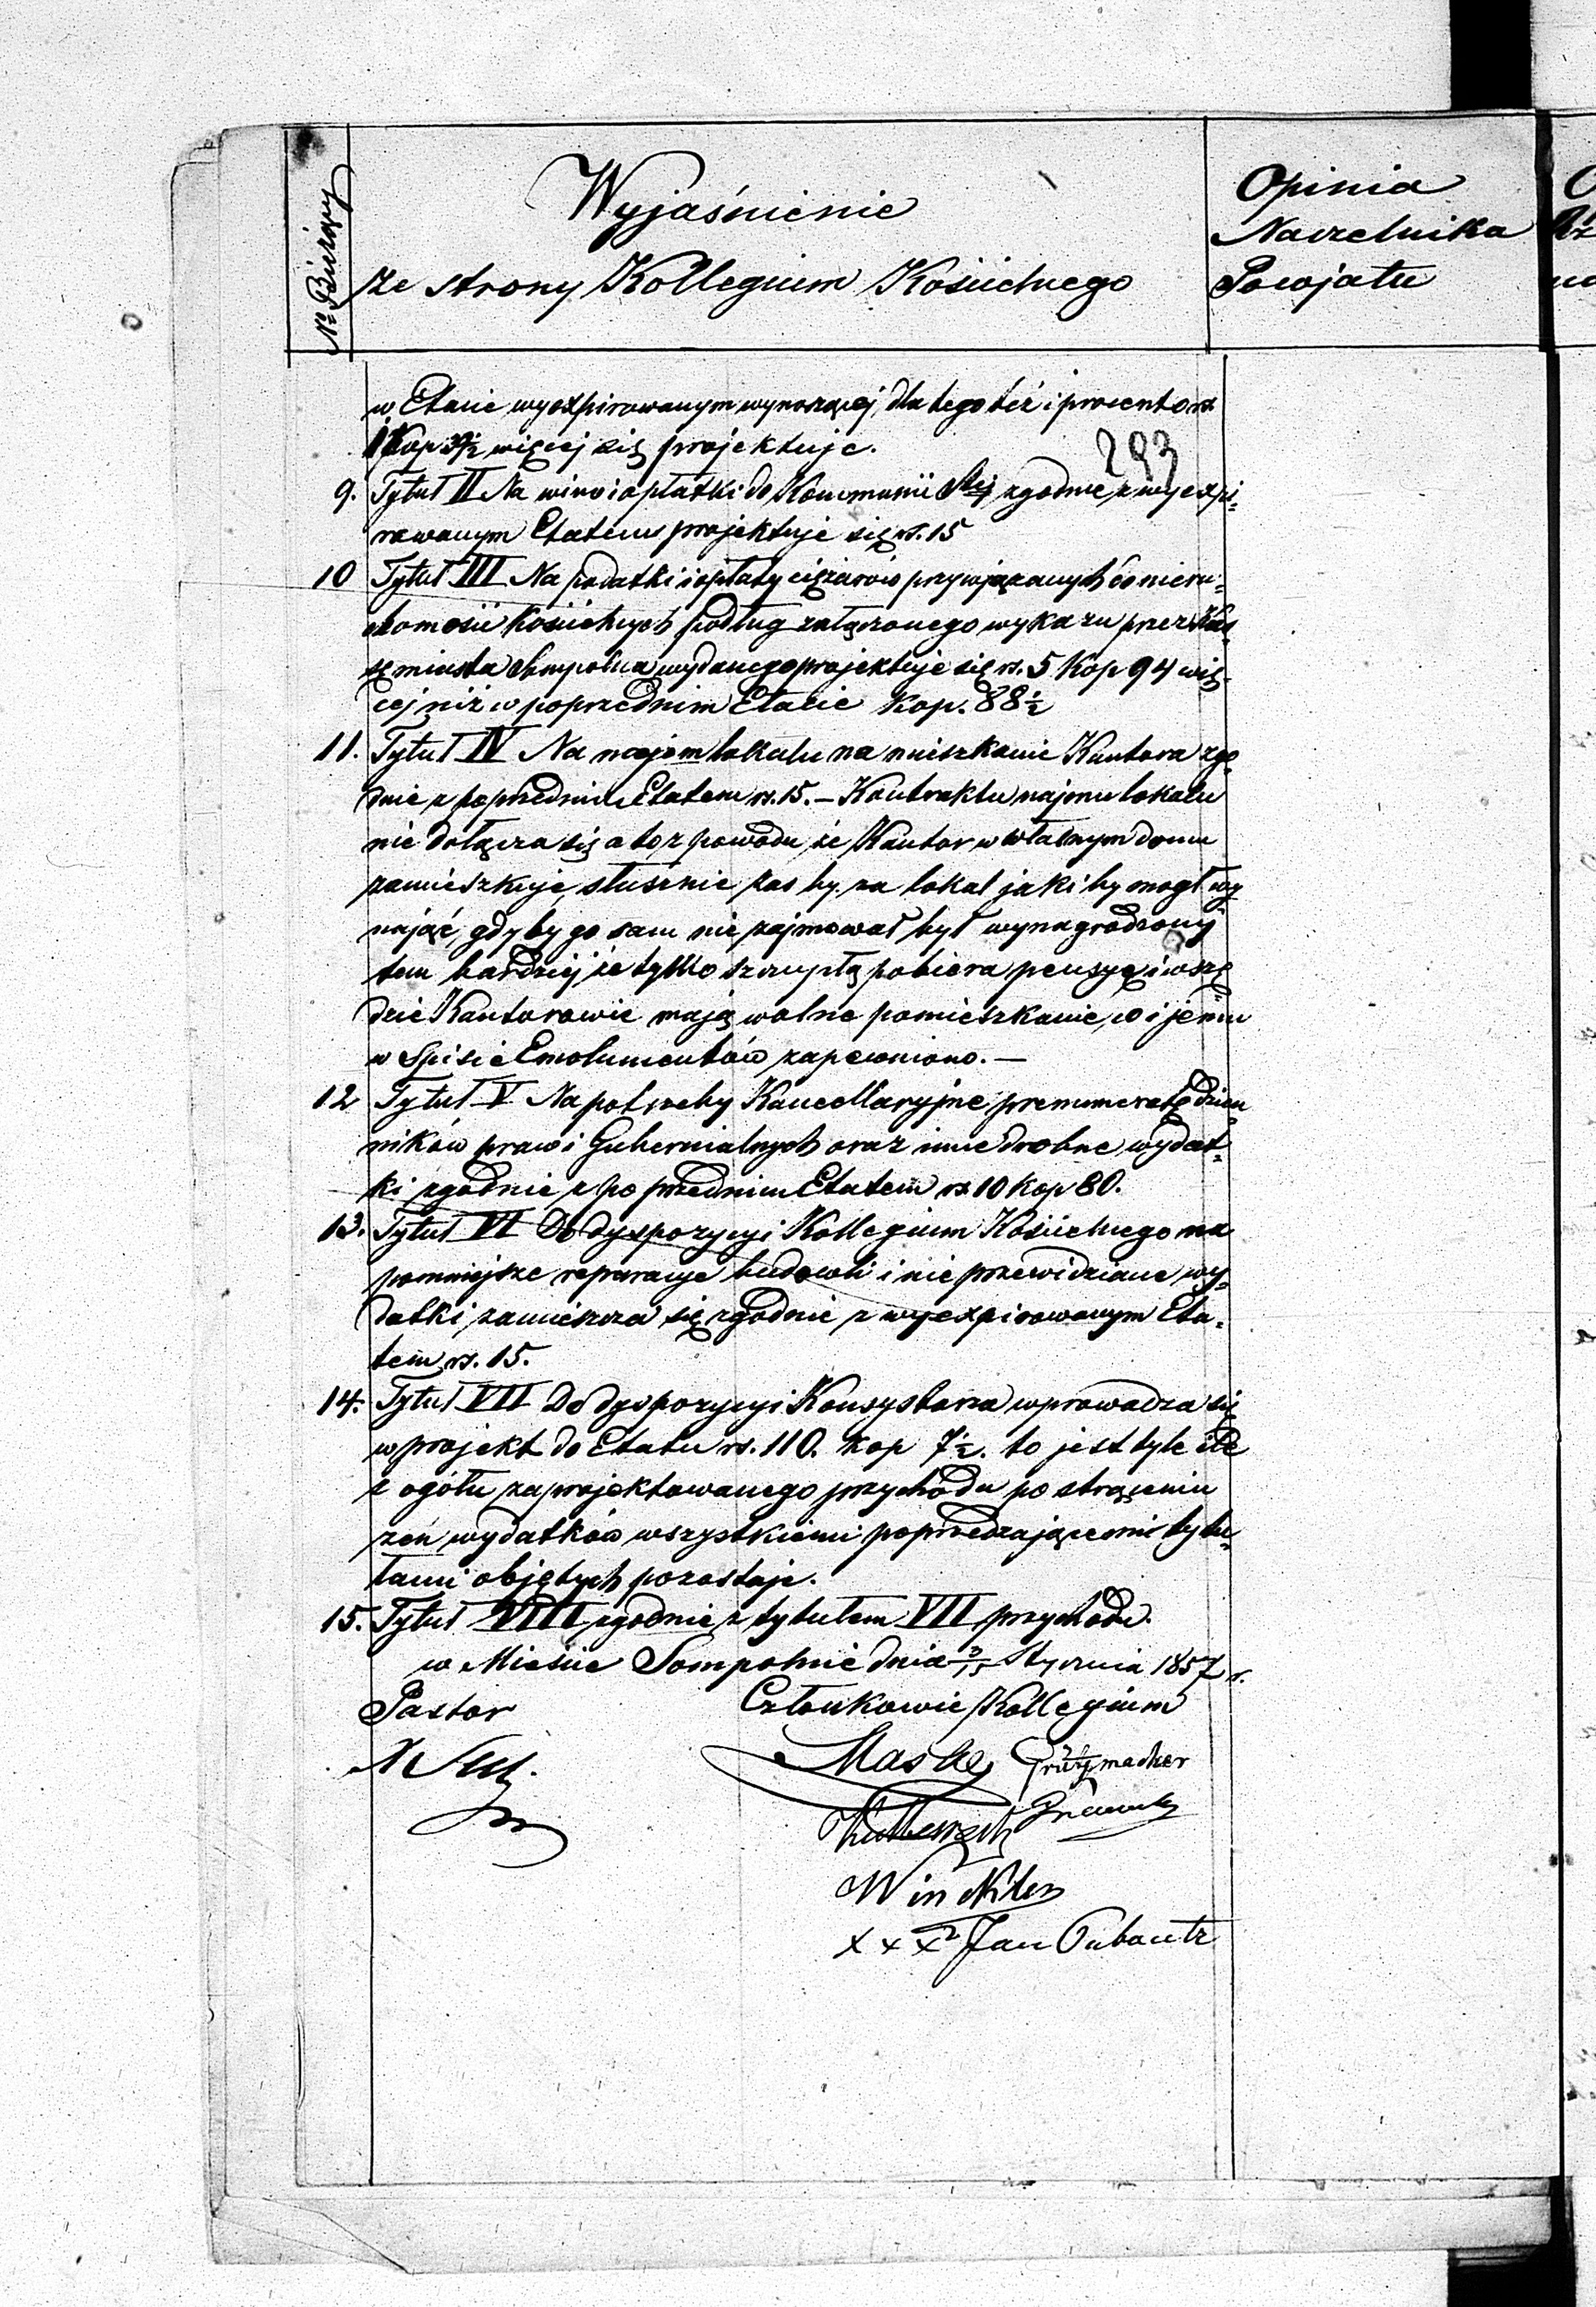 Nº Bieżący
Wyjaśnienie
ze strony Kollegium Kościelnego
Opinia
Naczelnika
Powiatu
w Etacie wyexpirowanym wynoszącej, dla tego też i procentu rs
1 Kop 39½ więcej się projektuje.
293
9. Tytuł II Na wino i opłatki do Kommunii Stej zgodnie z wyexpi-
rowanym Etatem projektuje się rs. 15
10 Tytuł III Na podatki i opłaty ciężarów przywiązanych do nieru-
chomości kościelnych podług załączonego wykazu przez Kas-
sę miasta Sompolna wydanego projektuje się rs. 5 Kop 94 wię-
cej niż w poprzednim Etacie Kop. 88½
11. Tytuł IV Na najem lokalu na mieszkanie Kantora zgo-
dnie z poprzednim Etatem rs. 15. – Kontraktu najmu lokalu
nie dołącza się a to z powodu że Kantor w własnym domu
zamieszkuje, słusznie zaś by za lokal jaki by mogł wy
nająć, gdyby go sam nie zajmował był wynagrodzony
tem bardziej że tylko szczupłą pobiera pensyę i wszę
dzie Kantorowie mają wolne pomieszkanie, co i jemu
w Spisie Emolumentów zapewniono. –
12 Tytuł V Na potrzeby Kancellaryjne prenumeratę dzien
ników praw i Gubernialnych oraz inne drobne wydat-
ki zgodnie z poprzednim Etatem rs 10 Kop 80.
13. Tytuł VI Do dyspozycyi Kollegium Kościelnego na
pomniejsze reperacye budowli i nie przewidziane wy-
datki zamieszcza się zgodnie z wyexpirowanym Eta-
tem rs. 15.
14. Tytuł VII Do dyspozycyi Konsystorza wprowadza się
w projekt do Etatu rs. 110. kop 7½. to jest tyle ile
z ogółu zaprojektowanego przychodu po strąceniu
zeń wydatków wszystkiemi poprzedzającemi tytu-
łami objętych pozostaje.
15. Tytuł VIII zgodnie z tytułem VII przychodu.
w Mieście Sompolnie dnia 3/15 Stycznia 1857 r.
Pastor
Członkowie Kollegium
Maske Grützmacher
Winckler
x x x Jan